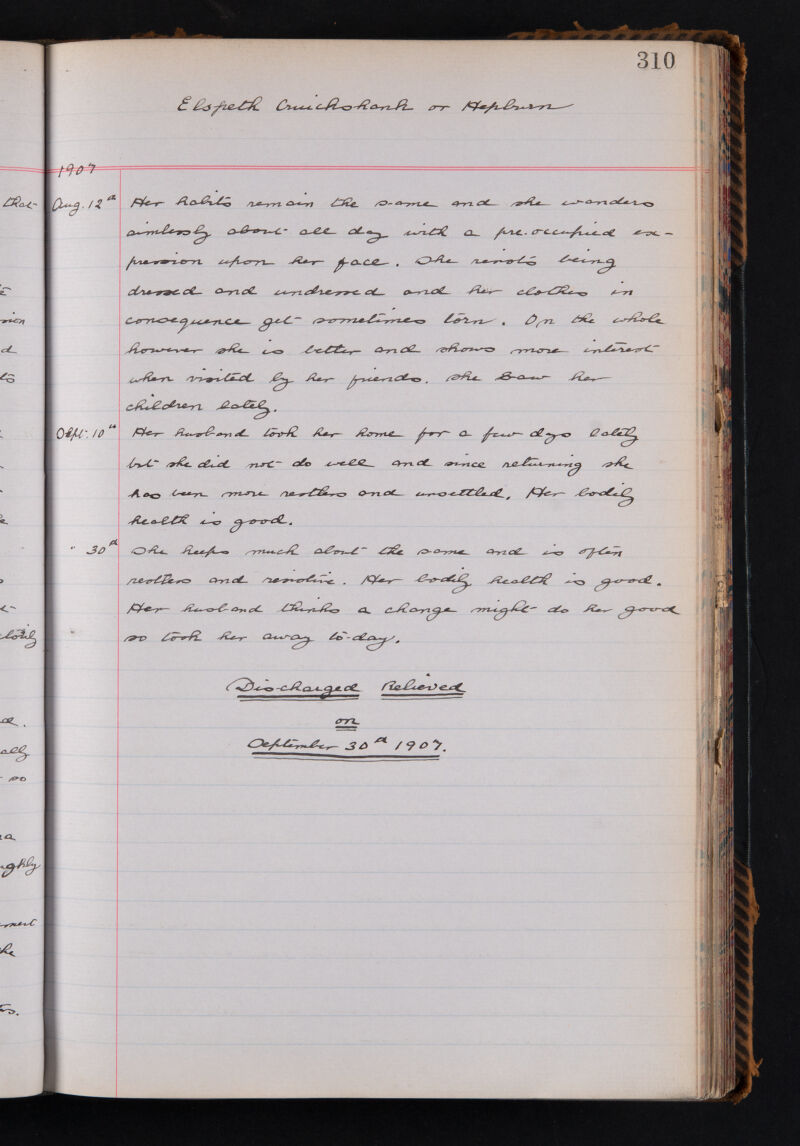 310
Elspeth Cruickshank or Hepburn
1907
Aug. 12th Her habits remain the same and she wanders
aimlessly about all day with a pre.occupied ex-
pression upon her face. She resists being
dressed and undressed and her clothes in
consequence get sometimes torn. On the whole
however she is better and shows more interest
when visited by her friends. She saw her
children lately.
Sept. 10th Her husband took her home for a few days lately
but she did not do well and since returning she
has been more restless and unsettled. Her bodily
health is good.
" 30th She keeps much about the same and is often
restless and resistive. Her bodily health is good.
Her husband thinks a change might do her good
so took her away to-day.
Discharged Relieved
on
September 30th 1907.
that